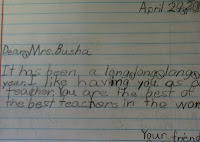 April 29, 20
Dear Mrs. Busha
It has been a long, long, long,
year. I like having you as a
teacher. You are the best of
the best teachers in the wor
Your friend